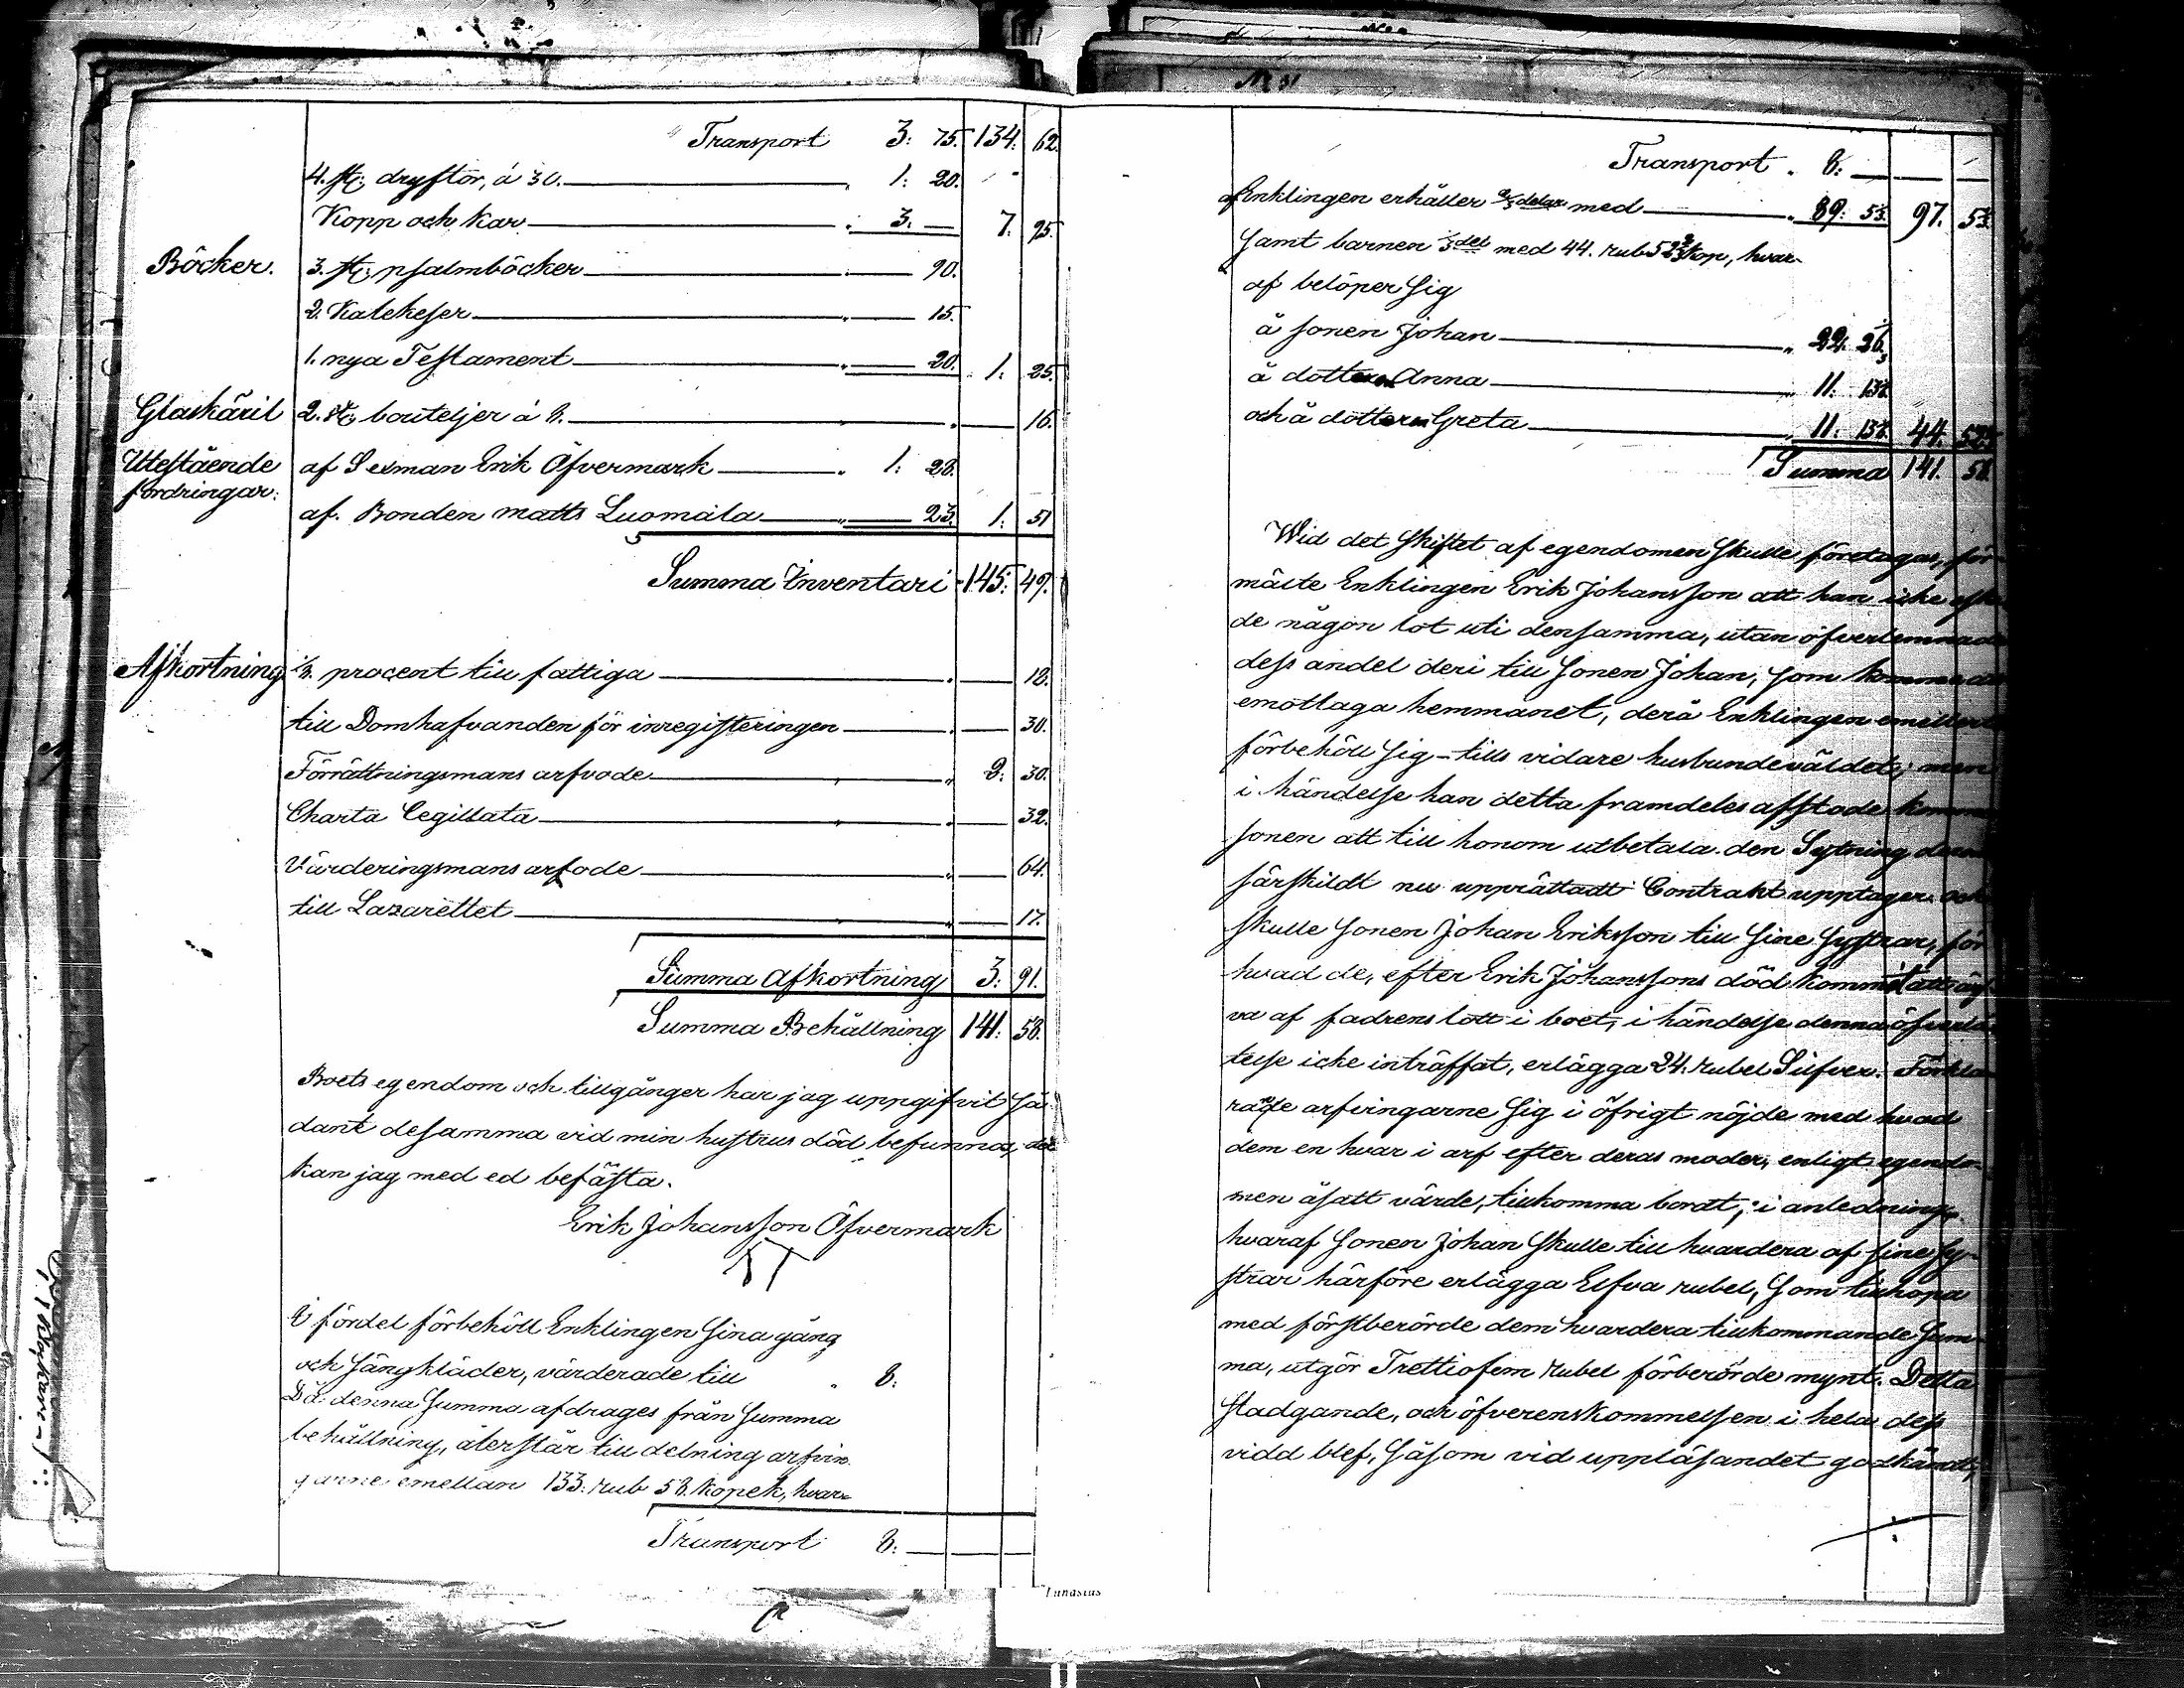 Transport 3: 75. 134: 62.
4. st: dryftor, á 30. 1: 20.
Kopp och kar 3. — 7. 95.
Böcker. 3. st: psalmböcker 90.
2. Katekeser 15.
1. nya Testament 20. 1: 25.
Glaskäril 2. st: bouteljer á 8. 16.
Utestående fordringar: af Sexman Erik Öfvermark 1: 28.
af. Bonden Matts Luomala 23. 1: 51
Summa Inventari 145: 49.
Afkortning 1/8. procent till fattiga 18.
till Domhafvanden för inregisteringen 30.
Förrättningsmans arfvode 2: 30.
Charta Cegillata 32.
Värderingsmans arfode 64.
till Lazarettet 17.
Summa Afkortning 3: 91.
Summa Behållning 141: 58.
Boets egendom och tillgånger har jag uppgifvit så-
dant desamma vid min hustrus död befunnos, det
kan jag med ed befästa.
Erik Johansson Öfvermark
I fördel förbehöll Enklingen sina gång
och sängkläder, värderade till 8:
Då denna summa afdrages från summa
behållning, återstår till delning arfvin-
garne emellan 133. rub 58. kopek, hvar-
Transport 8:
Transport 8:
af Enklingen erhåller 2/3 delar med 89: 5 1/3. 97. 5 1/3.
samt barnen 1/3 del med 44. rub 52 2/3 kop, hvar-
af belöper sig
å sonen Johan 22. 26 1/3
å dottern Anna 11: 13 1/6.
och å dottern Greta 11: 13 1/6. 44. 52 2/3.
Summa 141. 58.
Wid det skiftet af egendomen skulle företagas, för-
mälte Enklingen Erik Johansson att han icke
de någon lot uti densamma, utan öfverlemnade
dess andel deri till sonen Johan, som
emottaga hemmanet, derå Enklingen emellertid
förbehöll sig tills vidare husbundeväldet; men
i händelse han detta framdeles afstode
sonen att till honom utbetala den Sytning
särskildt nu upprättadt Contrakt upptager och
skulle sonen Johan Eriksson till sine systrar, för
hvad de, efter Erik Johanssons död kommit att ärf-
va af fadrens lott i boet, i händelse denna öfverlå-
telse icke inträffat, erlägga 24. rubel Silfver. Förkla-
rade arfvingarne sig i öfrigt nöjde med hvad
dem en hvar i arf efter deras moder, enligt egendo-
men åsatt värde, tillkomma bordt, i anledning
hvaraf sonen Johan skulle till hvardera af sine sy-
strar härföre erlägga Elfva rubel, som tillhopa
med förstberörde dem hvardera tillkommande sum-
ma, utgör Trettiofem rubel förberörde mynt. Detta
stadgande, och öfverenskommelsen i hela dess
vidd blef, såsom vid uppläsandet godkändt,